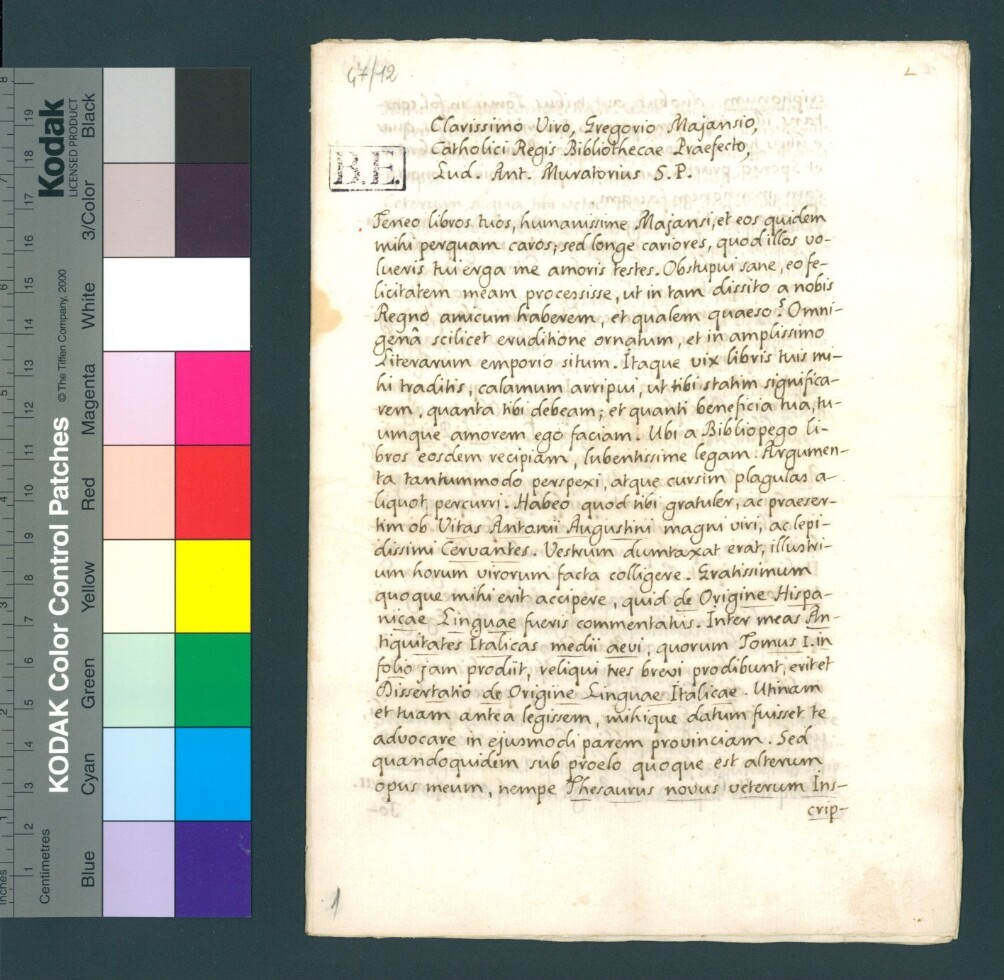 47/12
Clarissimo Viro, Gregorio Majansio,
Catholici Regis Bibliothecae Praefecto,
Lud. Ant. Muratorius S. P.
B.E.
Teneo libros tuos, humanissime Majansi, et eos quidem
mihi perquam caros; sed longe cariores, quod illos vo-
lueris tui erga me amoris testes. Obstupui sane, eo fe-
licitatem meam processisse, ut in tam dissito a nobis
Regno amicum haberem, et qualem quaeso? Omni-
genâ scilicet eruditione ornatum, et in amplissimo
Literarum emporio situm. Itaque vix libris tuis mi-
hi traditis, calamum arripui, ut tibi statim significa-
rem, quanta tibi debeam; et quanti beneficia tua, tu-
umque amorem ego faciam. Ubi a Bibliopego li-
bros eosdem recipiam, lubentissime legam. Argumen-
ta tantummodo perspexi, atque cursim plagulas a-
liquot percurri. Habeo quod tibi gratuler, ac praeser-
tim ob Vitas Antonii Augustini magni viri, ac lepi-
dissimi Cervantes. Vestrum dumtaxat erat, illustri-
um horum virorum facta colligere. Gratissimum
quoque mihi erit accipere, quid de Origine Hispa-
nicae Linguae fueris commentatus. Inter meas An-
tiquitates Italicas medii aevi, quorum Tomus I. in
folio jam prodiit, reliqui tres brevi prodibunt, erit et
Dissertatio de Origine Linguae Italicae. Utinam
et tuam antea legissem, mihique datum fuisset te
advocare in ejusmodi parem provinciam. Sed
quandoquidem sub proelo quoque est alterum
opus meum, nempe Thesaurus novus veterum Ins-
crip-
1
Kodak
LICENSED PRODUCT
KODAK Color Control Patches
© The Tiffen Company, 2000
Black
3/Color
White
Magenta
Red
Yellow
Green
Cyan
Blue
Centimetres
Inches
1 2 3 4 5 6 7 8 9 10 11 12 13 14 15 16 17 18 19
1 2 3 4 5 6 7 8